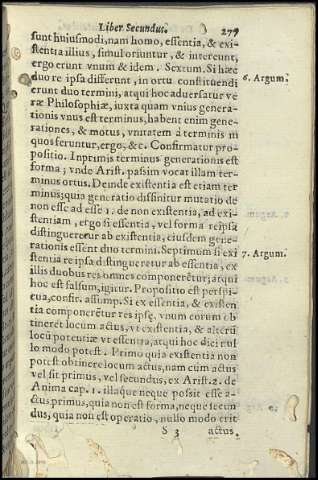 Liber Secundus. 277
sunt huiusmodi, nam homo, essentia, & exi-
stentia illius, simul oriuntur, & intereunt,
ergo erunt vnum & idem. Sextum. Si hæc
duo re ipsa differunt, in ortu constituendi
6. Argum.
erunt duo termini, atqui hoc aduersatur ve
ræ Philosophiæ, iuxta quam vnius genera-
tionis vnus est terminus, habent enim gene-
rationes, & motus, vnitatem à terminis in
quos feruntur, ergo, &c. Confirmatur pro-
positio. In primis terminus generationis est
forma; vnde Arist. passim vocat illam ter-
minus ortus. Deinde existentia est etiam ter
minus; quia generatio diffinitur mutatio de
non esse ad esse i. de non existentia, ad exi-
stentiam, ergo si essentia, vel forma reipsa
distingueretur ab existentia, eiusdem gene-
rationis essent duo termini. Septimum si exi
stentia re ipsa distingueretur ab essentia, ex
7. Argum.
illis duobus res omnes componerẽtur; atqui
hoc est falsum, igitur. Propositio est perspi-
cua, confir. assump. Si ex essentia, & existen
tia componerẽtur res ipsę, vnum eorum ob
tineret locum actus, vt existentia, & alterũ
locũ potentiæ vt essentia, atqui hoc dici nul
lo modo potest. Primo quia existentia non
potest obtinere locum actus, nam cùm actus
vel sit primus, vel secundus, ex Arist. 2. de
Anima cap. 1. illaque neque possit esse a-
ctus primus, quia non est forma, neque secun
dus, quia non est operatio, nullo modo erit
S 3 actus.